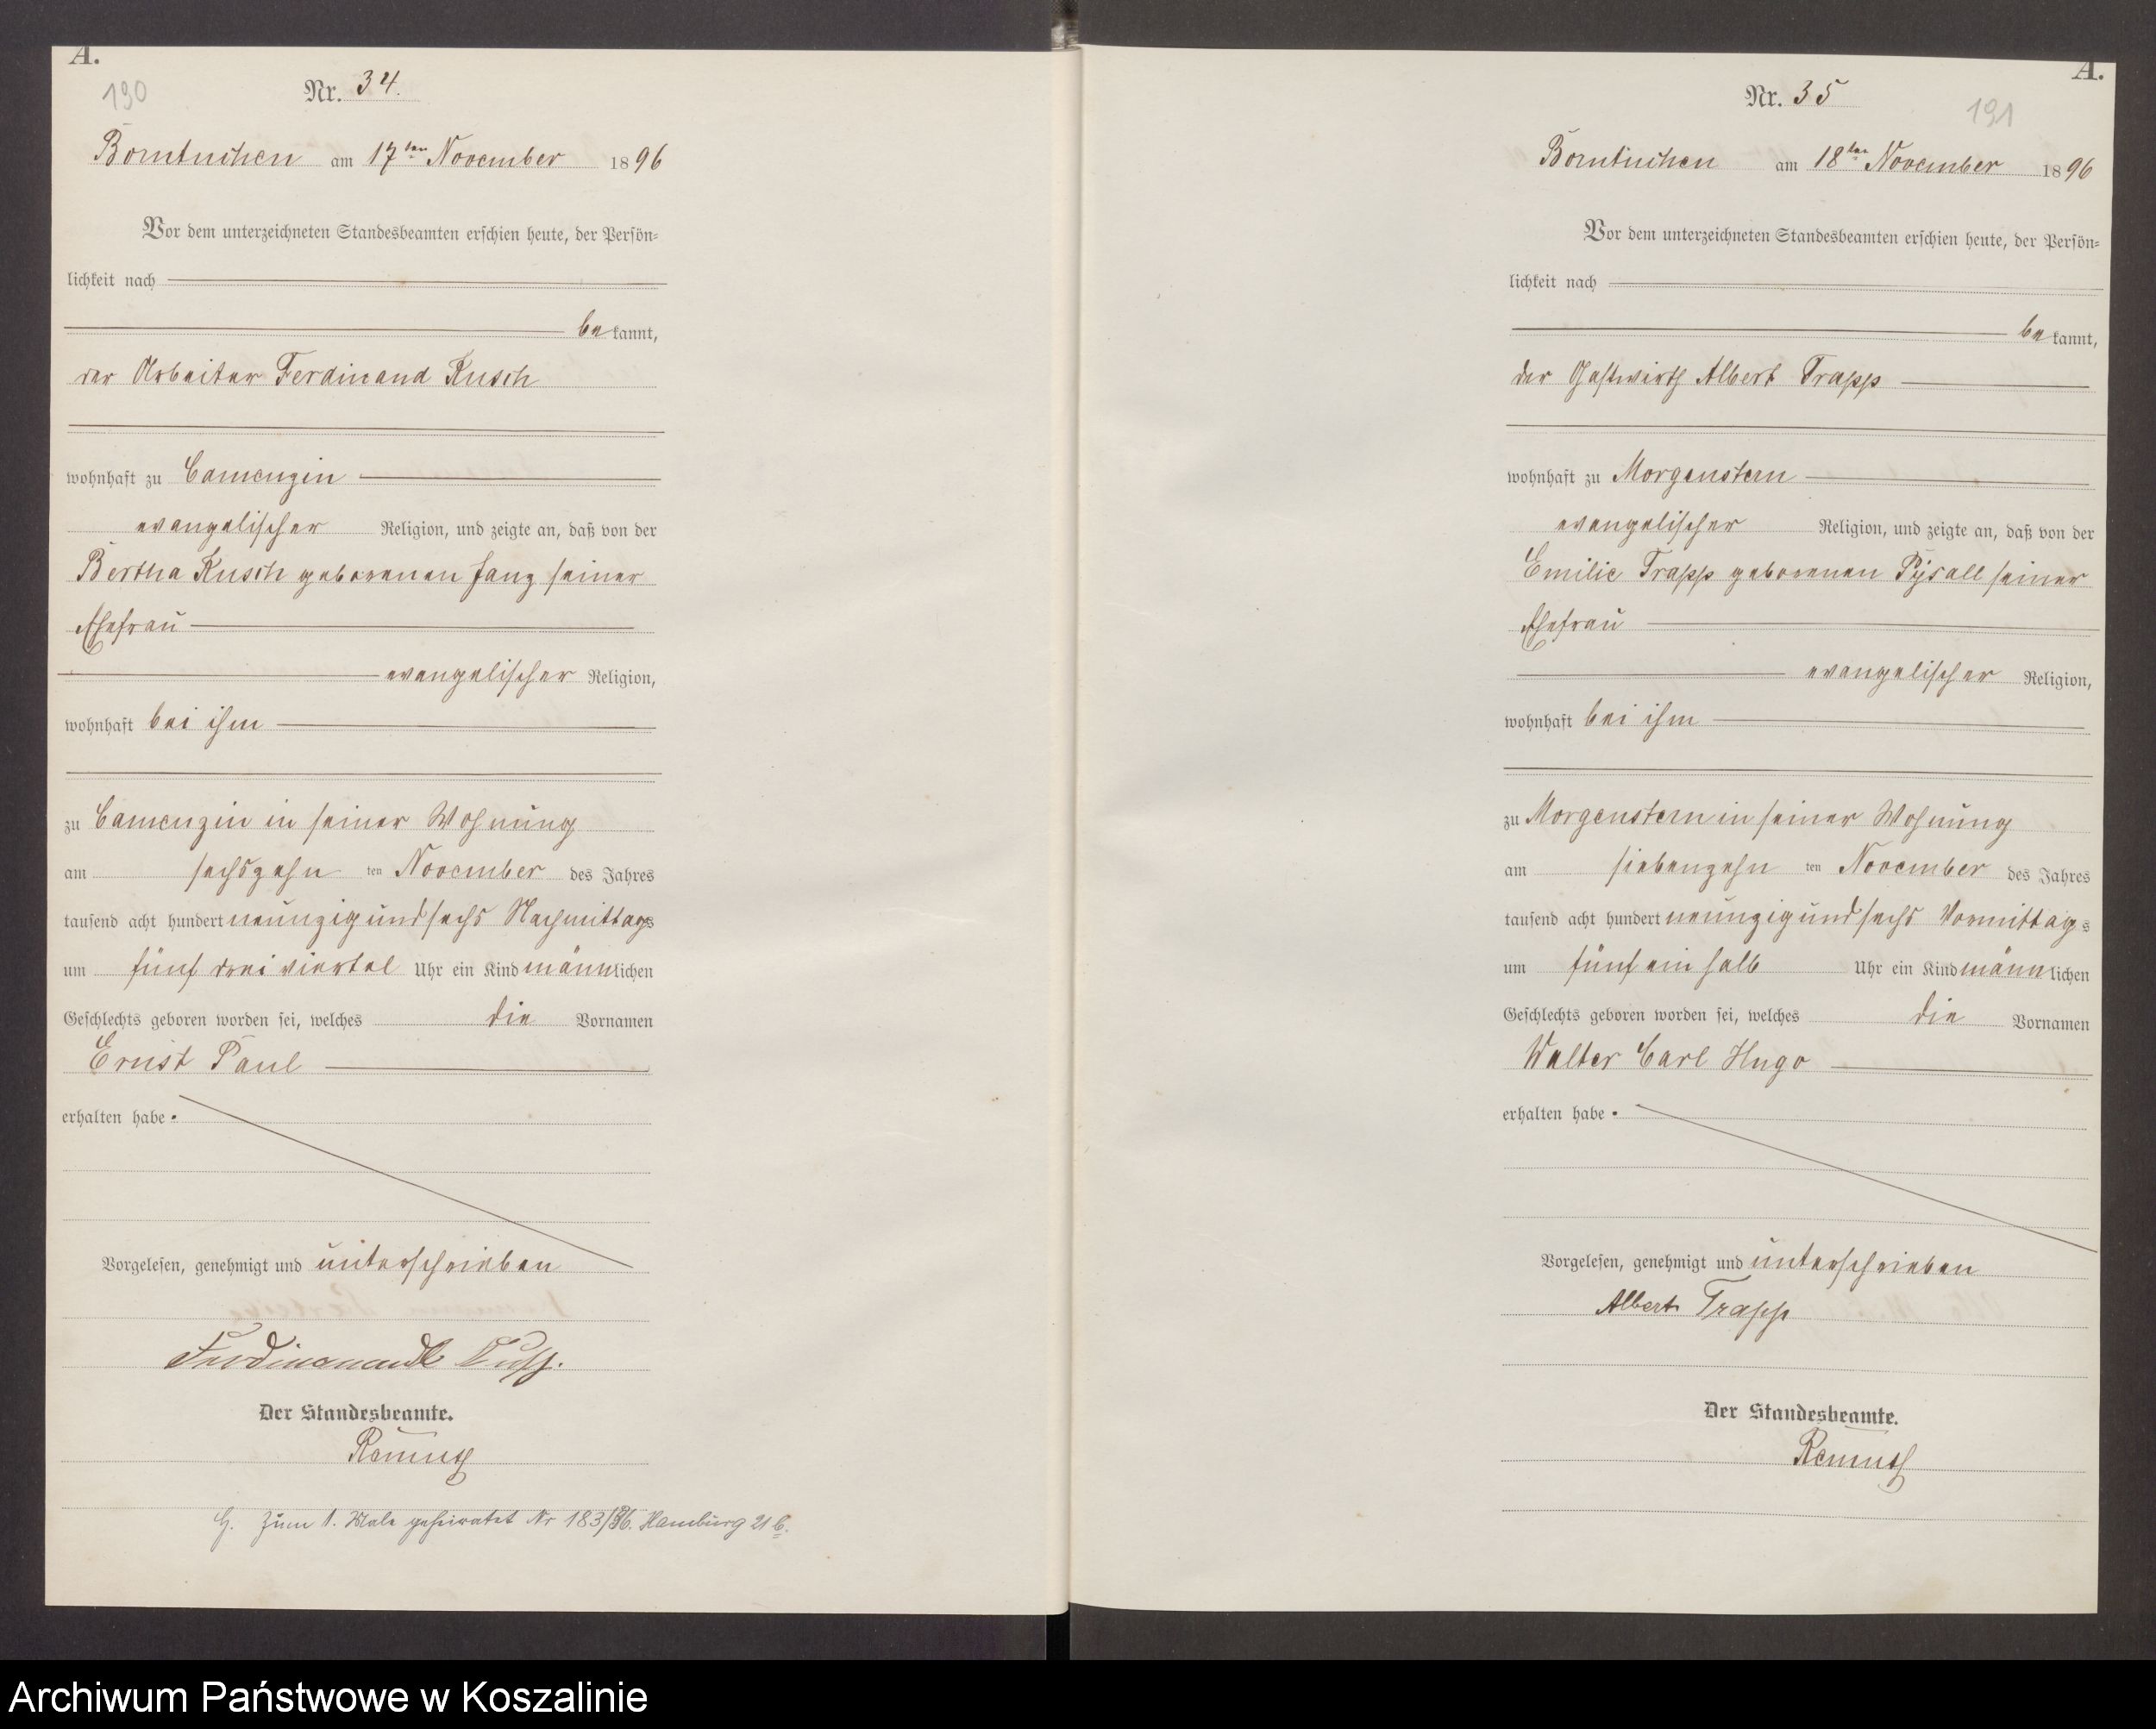 A.
190
Nr. 34.
Borntuchen am 17ten November 1896
Vor dem unterzeichneten Standesbeamten erschien heute, der Persön=
lichkeit nach
bekannt,
der Arbeiter Ferdinand Kusch
wohnhaft zu Camenzin
evangelischer Religion, und zeigte an, daß von der
Bertha Kusch geborenen Janz seiner
Ehefrau
evangelischer Religion,
wohnhaft bei ihm
zu Camenzin in seiner Wohnung
am sechszehn ten November des Jahres
tausend acht hundert neunzig und sechs Nachmittags
um fünf drei viertel Uhr ein Kind männlichen
Geschlechts geboren worden sei, welches die Vornamen
Ernst Paul
erhalten habe.
Vorgelesen, genehmigt und unterschrieben
Der Standesbeamte.
Ramuth
H. Zum 1. Male geheiratet Nr 183/ Hamburg 21
A.
191
Nr. 35
Borntuchen am 18ten November 1896
Vor dem unterzeichneten Standesbeamten erschien heute, der Persön=
lichkeit nach
bekannt,
der Gastwirth Albert Trapp
wohnhaft zu Morgenstern
evangelischer Religion, und zeigte an, daß von der
Emilie Trapp geborenen Pysall seiner
Ehefrau
evangelischer Religion,
wohnhaft bei ihm
zu Morgenstern in seiner Wohnung
am siebenzehn ten November des Jahres
tausend acht hundert neunzig und sechs Vormittags
um fünf ein halb Uhr ein Kind männlichen
Geschlechts geboren worden sei, welches die Vornamen
Walter Carl Hugo
erhalten habe.
Vorgelesen, genehmigt und unterschrieben
Albert Trapp
Der Standesbeamte.
Ramuth
Archiwum Państwowe w Koszalinie